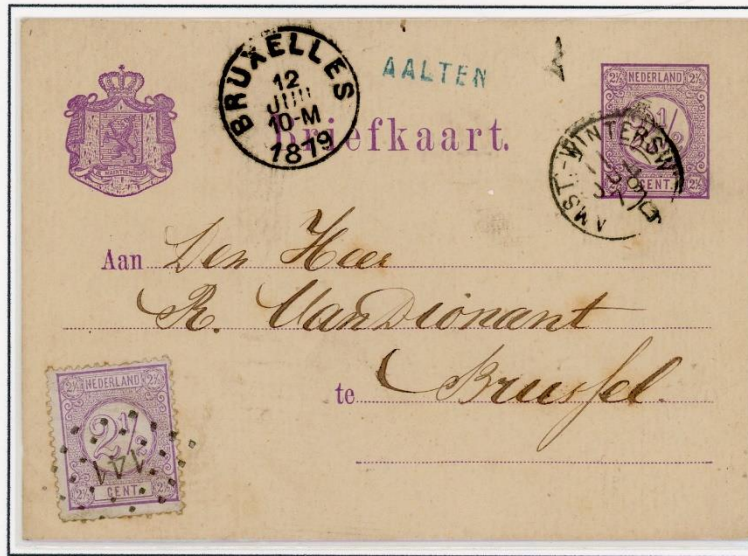 BRUXELLES
12
JUIL
10-M
1879
AALTEN
Briefkaart.
2½ NEDERLAND 2½
2½ CENT. 2½
AMST.-WINTERSW
Aan Den Heer
R. Van Dionant
te Brussel.
2½ NEDERLAND 2½
2½
144
2½ CENT. 2½